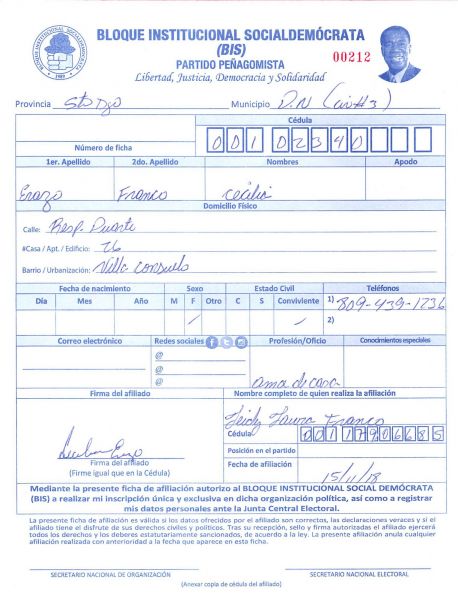 BLOQUE INSTITUCIONAL SOCIALDEMÓCRATA
(BIS)
PARTIDO PEÑAGOMISTA
00212
Libertad, Justicia, Democracia y Solidaridad
BLOQUE INSTITUCIONAL SOCIALDEMOCRATA
Provincia Sto Dgo Municipio D.N (cir #3)
Cédula
Número de ficha 001 02340
1er. Apellido 2do. Apellido Nombres Apodo
Erazo Franco Cecilia
Domicilio Físico
Calle: Resp. Duarte
#Casa / Apt. / Edificio: 76
Barrio / Urbanización: Villa Consuelo
Fecha de nacimiento Sexo Estado Civil Teléfonos
Día Mes Año M F Otro C S Conviviente 1) 809-439-1736
2)
Correo electrónico Redes sociales Profesión/Oficio Conocimientos especiales
@
@
@
ama de casa
Firma del afiliado Nombre completo de quien realiza la afiliación
Franco
Cédula 001 1790668 5
Posición en el partido
Firma del afiliado
(Firme igual que en la Cédula)
Fecha de afiliación
15/11/18
Mediante la presente ficha de afiliación autorizo al BLOQUE INSTITUCIONAL SOCIAL DEMÓCRATA
(BIS) a realizar mi inscripción única y exclusiva en dicha organización política, así como a registrar
mis datos personales ante la Junta Central Electoral.
La presente ficha de afiliación es válida si los datos ofrecidos por el afiliado son correctos, las declaraciones veraces y si el
afiliado tiene el disfrute de sus derechos civiles y políticos. Tras su recepción, sello y firma autorizadas el afiliado ejercerá
todos los derechos y los deberes estatutariamente sancionados, de acuerdo a la ley. La presente afiliación anula cualquier
afiliación realizada con anterioridad a la fecha que aparece en esta ficha.
SECRETARIO NACIONAL DE ORGANIZACIÓN SECRETARIO NACIONAL ELECTORAL
(Anexar copia de cédula del afiliado)